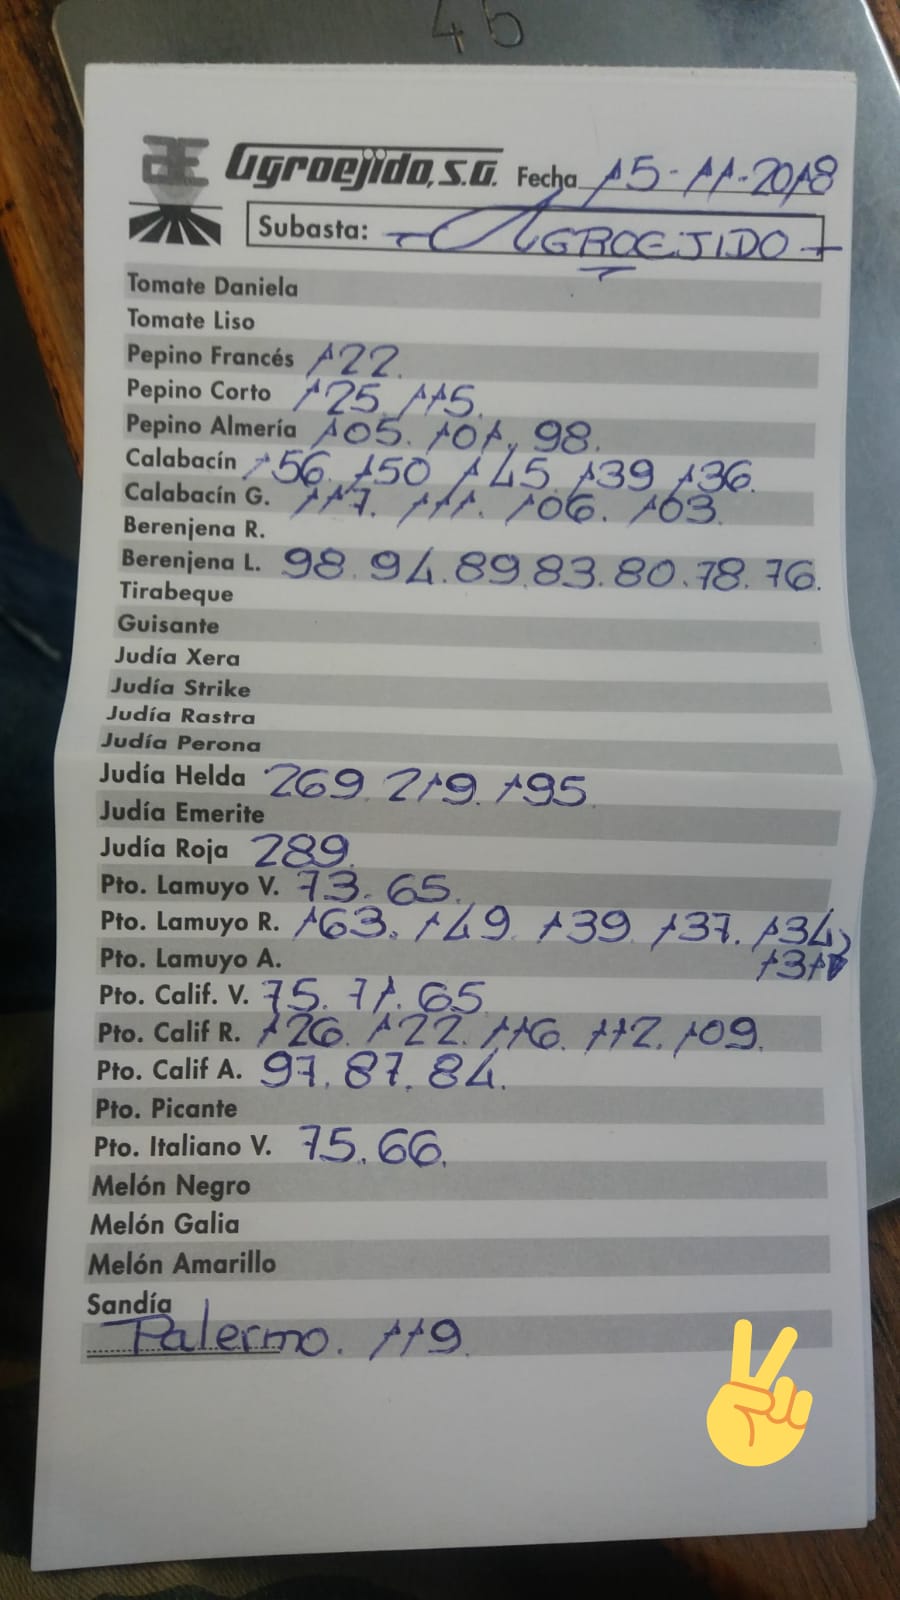 46
Agroejido, S.A. Fecha 15-11-2018
Subasta: AGROEJIDO
Tomate Daniela
Tomate Liso
Pepino Francés 122.
Pepino Corto 125. 115.
Pepino Almería 105. 101. 98.
Calabacín 156. 150 145. 139 136.
Calabacín G. 117. 111. 106. 103.
Berenjena R.
Berenjena L. 98. 94. 89. 83. 80. 78. 76.
Tirabeque
Guisante
Judía Xera
Judía Strike
Judía Rastra
Judía Perona
Judía Helda 269. 219. 195
Judía Emerite
Judía Roja 289.
Pto. Lamuyo V. 73. 65.
Pto. Lamuyo R. 163. 149. 139. 137. 134,
131
Pto. Lamuyo A.
Pto. Calif. V. 75. 71. 65
Pto. Calif R. 126. 122. 116. 112. 109.
Pto. Calif A. 97. 87. 84.
Pto. Picante
Pto. Italiano V. 75. 66.
Melón Negro
Melón Galia
Melón Amarillo
Sandía
Palermo. 119.